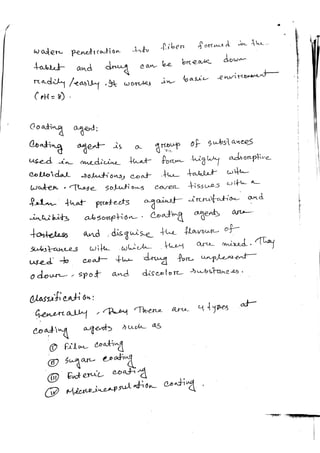 water penetration into fiber formed in the.
tablet and drug can be break down
readily /easily. It works in basic environment
(pH = 8).
Coating agent:
Coating agent is a group of substances
used in medicine that form highly adsorptive
colloidal solutions, coat the tablet with
water. These solutions cover tissues with a
film that protects against irritation and
inhibits absorption. Coating agents are
tasteless and disguise the flavour of
substances with which they are mixed. They
used to coat the drug for unpleasent
odour, spot and discolore substances.
Classification:
Generally, There are 4 types of
coating agents such as
(i) Film coating
(ii) Sugar coating
(iii) Enteric coating
(iv) Microincapsulation coating.